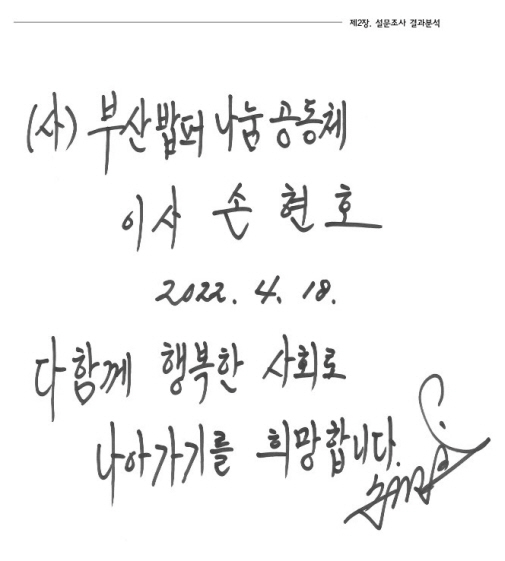 제2장. 설문조사 결과분석
(사) 부산밥퍼나눔공동체
이사 손현호
2022. 4. 18.
다함께 행복한 사회로
나아가기를 희망합니다.